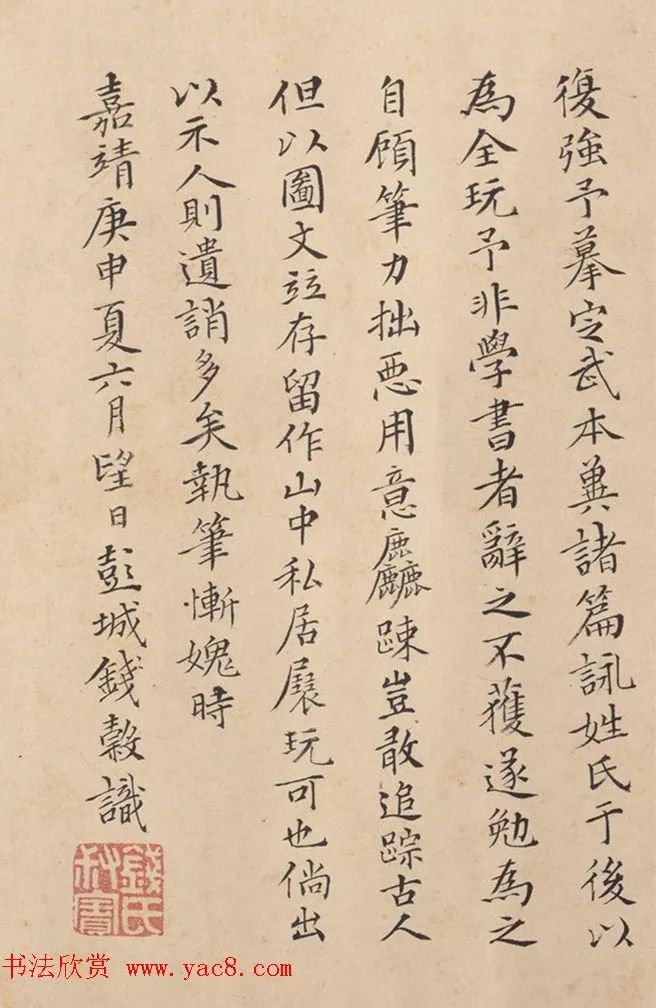 復強予摹定武本蕪諸篇詠姓氏于後以
為全玩予非學書者辭之不獲遂勉為之
自顧筆力拙惡用意麤踈豈敢追踪古人
但以圖文竝存留作山中私居展玩可也倘出
以示人則遺誚多矣執筆慚媿時
嘉靖庚申夏六月望日彭城錢榖識
錢氏
书法欣赏 www.yac8.com